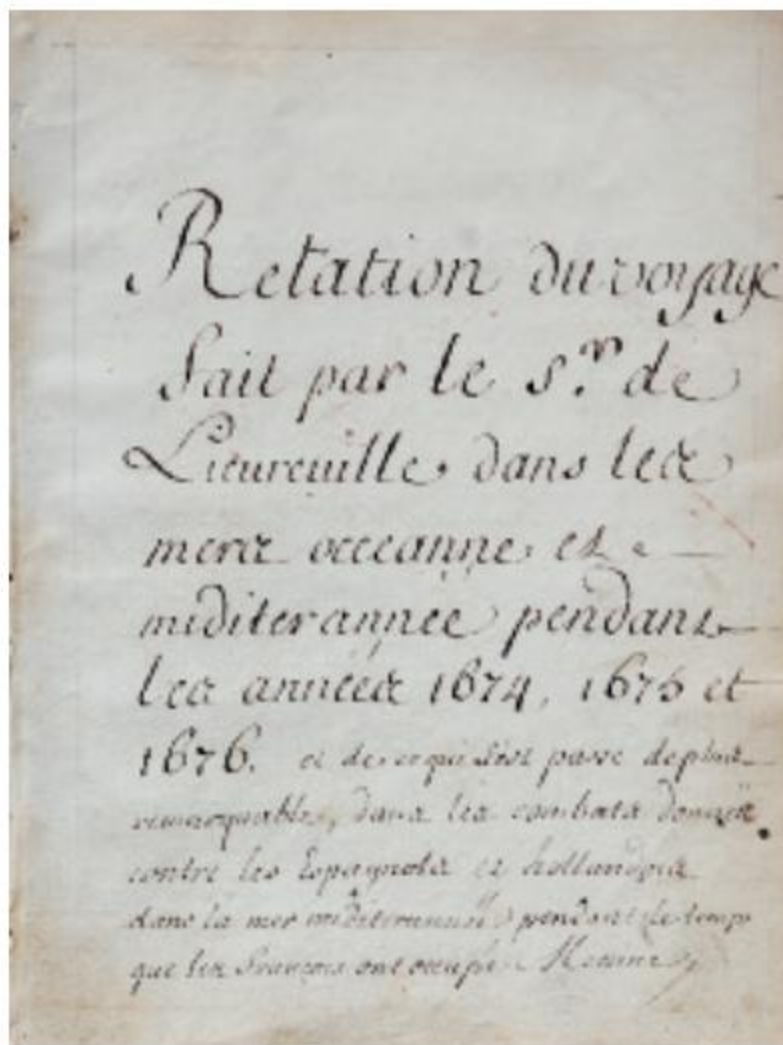 Relation du voyage
fait par le s.r de
Lieureville dans les
mers occeanne et
miditerannée pendant
les années 1674, 1675 et
1676. et de ce qui s'est passé de plus
remarquable, dans les combats donnés
contre les Espagnols et hollandois
dans la mer miditerannée pendant le temps
que les françois ont occupé Messine,